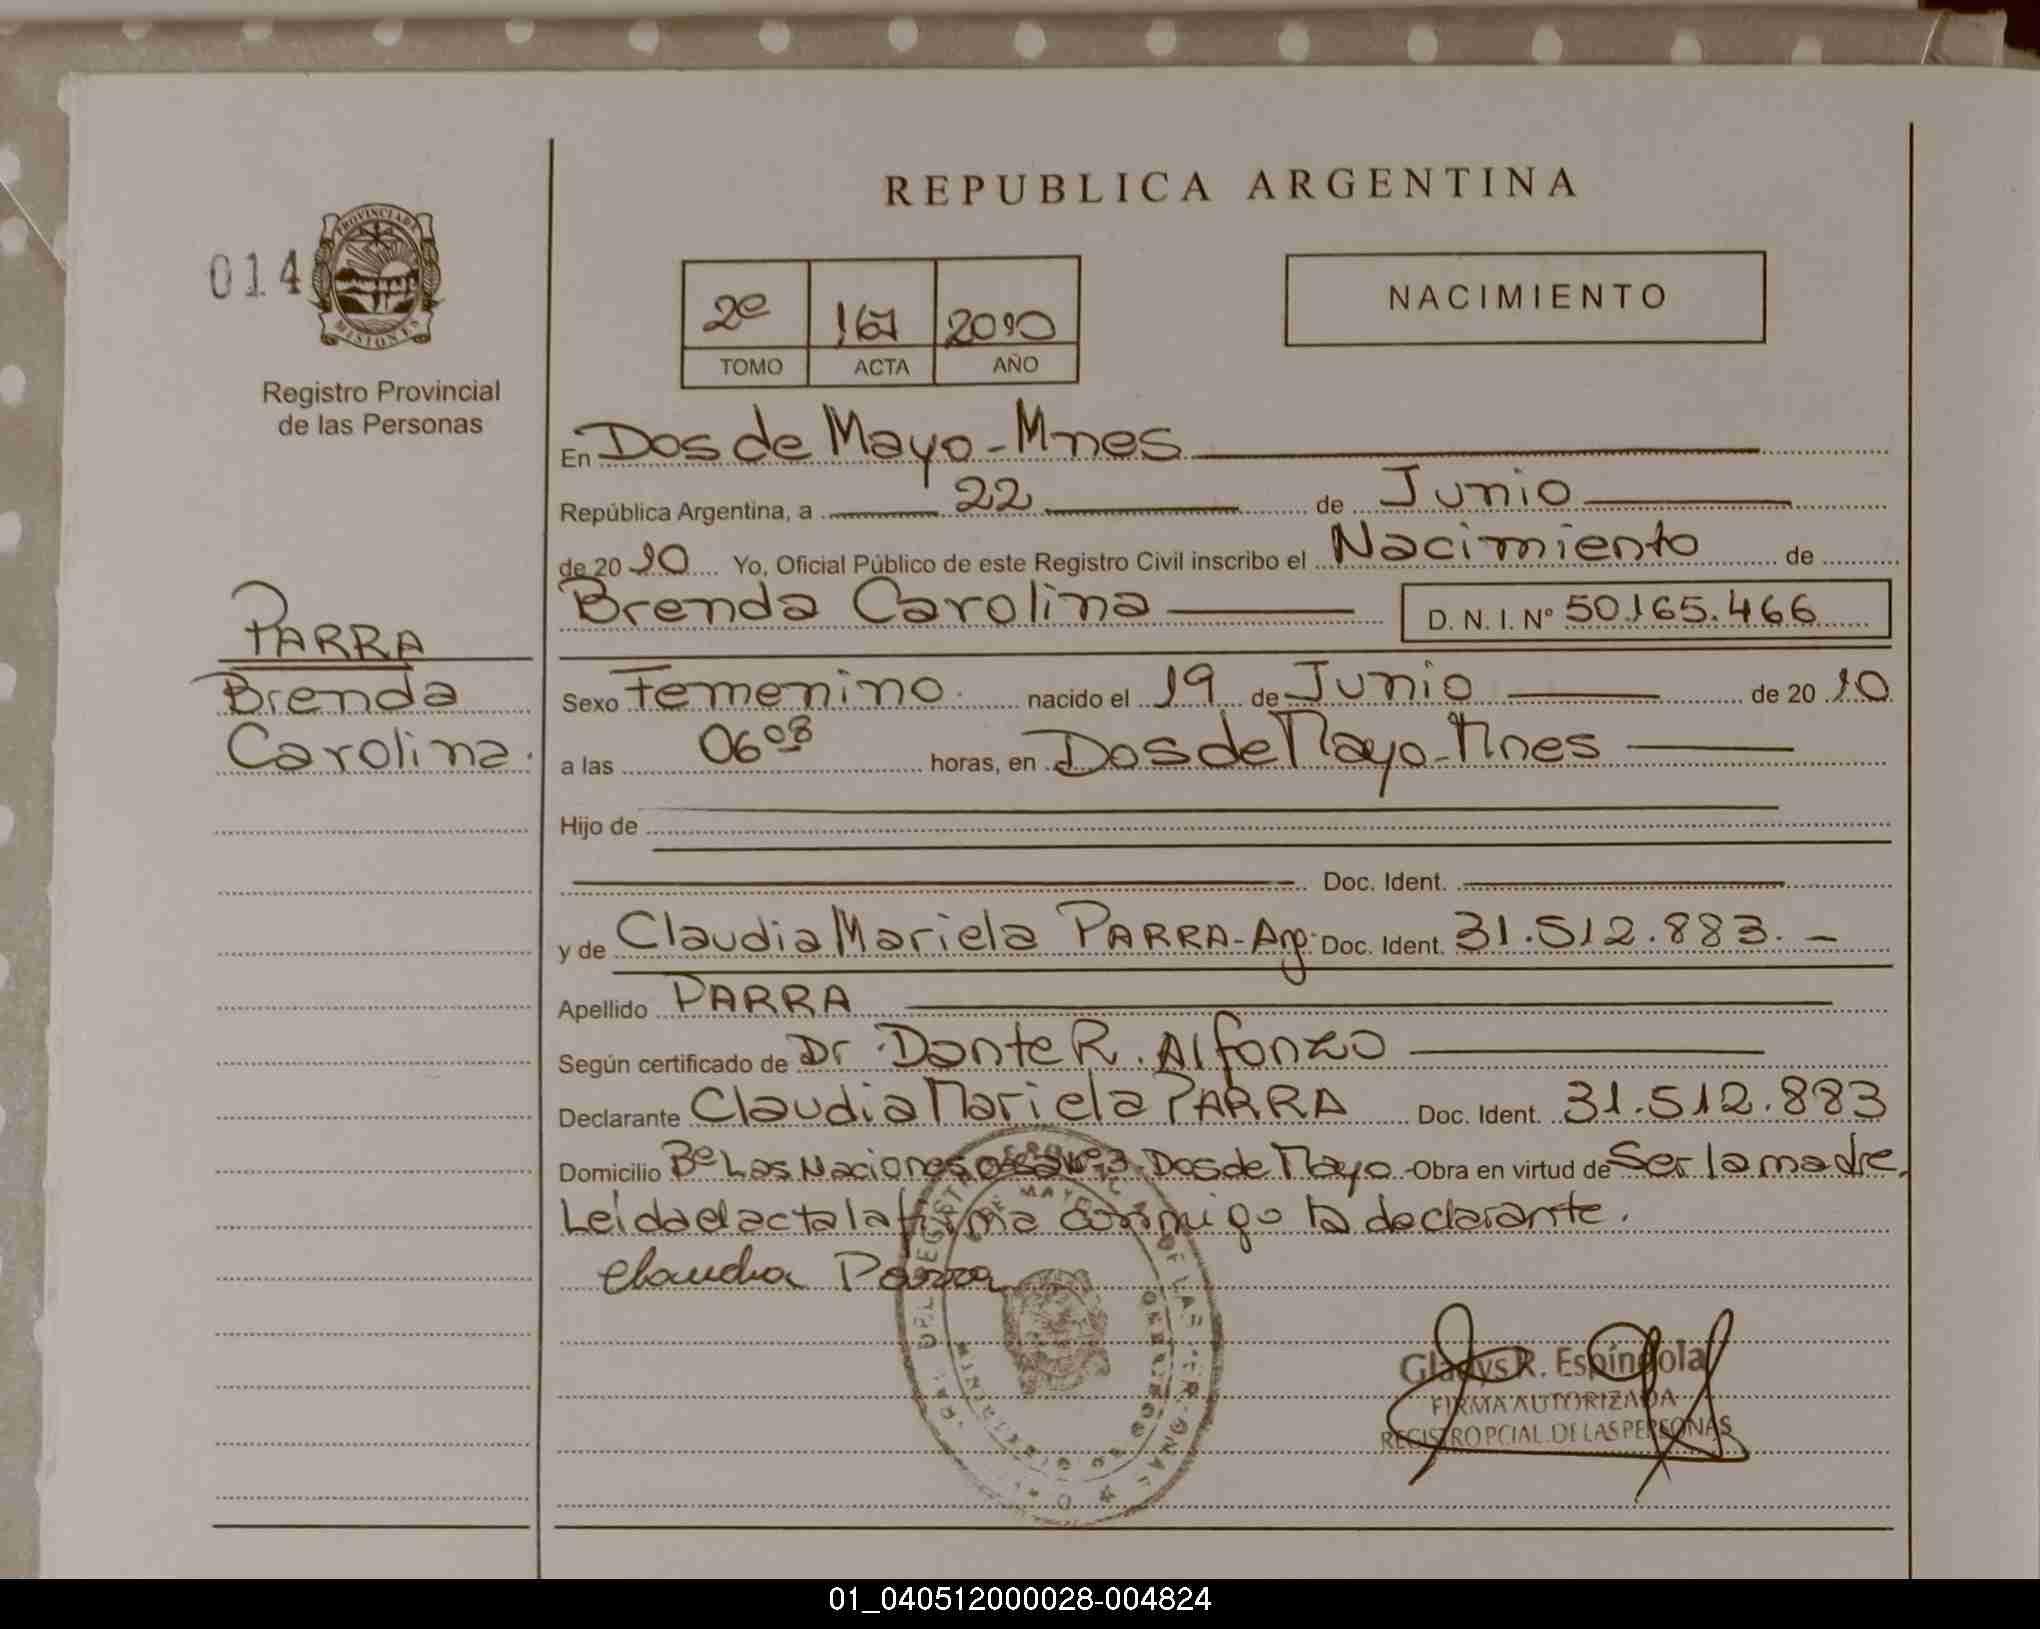 REPUBLICA ARGENTINA
014
PROVINCIA DE
MISIONES
Registro Provincial
de las Personas
2º 167 2010
TOMO ACTA AÑO
NACIMIENTO
En Dos de Mayo - Mnes
República Argentina, a 22 de Junio
de 2010 Yo, Oficial Público de este Registro Civil inscribo el Nacimiento de
Brenda Carolina D. N. I. Nº 50.165.466
PARRA
Brenda
Carolina.
Sexo Femenino. nacido el 19 de Junio de 2010
a las 06 08 horas, en Dos de Mayo - Mnes
Hijo de
Doc. Ident.
y de Claudia Mariela PARRA - Arg. Doc. Ident. 31.512.883. -
Apellido PARRA
Según certificado de Dr. Dante R. Alfonzo
Declarante Claudia Mariela PARRA Doc. Ident. 31.512.883
Domicilio Bº Las Naciones casa Nº 3. Dos de Mayo. - Obra en virtud de Ser la madre.
Leída el acta la firma conmigo la declarante.
Claudia Parra
Gladys R. Espíndola
FIRMA AUTORIZADA
REGISTRO PCIAL. DE LAS PERSONAS
01_040512000028-004824